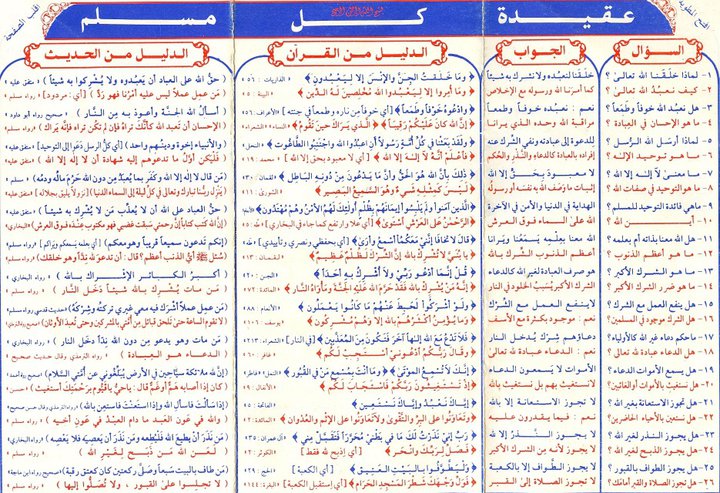 عقيدة كل مسلم
السؤال الجواب الدليل من القرآن الدليل من الحديث
١- لماذا خلقنا الله تعالى ؟ خلقنا لنعبده ولا نشرك به شيئاً ﴿ وما خلقت الجن والإنس إلا ليعبدون ﴾ الذاريات : ٥٦ (حق الله على العباد أن يعبدوه ولا يشركوا به شيئاً) متفق عليه
٢- كيف نعبد الله تعالى ؟ كما أمرنا الله ورسوله مع الإخلاص ﴿ وما أمروا إلا ليعبدوا الله مخلصين له الدين ﴾ البينة : ٥ (من عمل عملاً ليس عليه أمرنا فهو رد) [أي : مردود] رواه مسلم
٣- هل نعبد الله خوفاً وطمعاً ؟ نعم : نعبده خوفاً وطمعاً ﴿ وادعوه خوفاً وطمعاً ﴾ [أي خوفاً من ناره وطمعاً في جنته] الأعراف : ٥٦ (أسأل الله الجنة وأعوذ به من النار) صحيح رواه أبو داود
٤- ما هو الإحسان في العبادة ؟ مراقبة الله وحده الذي يرانا ﴿ إن الله كان عليكم رقيباً ﴾ ﴿ الذي يراك حين تقوم ﴾ (الإحسان أن تعبد الله كأنك تراه فإن لم تكن تراه فإنه يراك) رواه مسلم
٥- لماذا أرسل الله الرسل ؟ للدعوة إلى عبادته ونفي الشرك عنه ﴿ ولقد بعثنا في كل أمة رسولاً أن اعبدوا الله واجتنبوا الطاغوت ﴾ النحل : ٣٦ (والأنبياء إخوة ودينهم واحد) [أي كل الرسل دعوا إلى التوحيد] متفق عليه
٦- ما هو توحيد الإله ؟ إفراده بالعبادة كالدعاء والنذر والحكم ﴿ فاعلم أنه لا إله إلا الله ﴾ [أي لا معبود بحق إلا الله] محمد : ١٩ (فليكن أول ما تدعوهم إليه شهادة أن لا إله إلا الله) متفق عليه
٧- ما معنى لا إله إلا الله ؟ لا معبود بحق إلا الله ﴿ ذلك بأن الله هو الحق وأن ما يدعون من دونه الباطل ﴾ لقمان : ٣٠ (من قال لا إله إلا الله وكفر بما يعبد من دون الله حرم ماله ودمه) رواه مسلم
٨- ما هو التوحيد في صفات الله ؟ إثبات ما وصف الله به نفسه أو رسوله ﴿ ليس كمثله شيء وهو السميع البصير ﴾ الشورى : ١١ (ينزل ربنا تبارك وتعالى في كل ليلة إلى السماء الدنيا) [نزولاً يليق بجلاله]
٩- ما هي فائدة التوحيد للمسلم ؟ الهداية في الدنيا والأمن في الآخرة ﴿ الذين آمنوا ولم يلبسوا إيمانهم بظلم أولئك لهم الأمن وهم مهتدون ﴾ الأنعام (حق العباد على الله أن لا يعذب من لا يشرك به شيئاً) متفق عليه
١٠- أين الله ؟ الله على السماء فوق العرش ﴿ الرحمن على العرش استوى ﴾ [أي علا وارتفع كما جاء في البخاري] طه : ٥ (إن الله كتب كتاباً إن رحمتي سبقت غضبي فهو مكتوب عنده فوق العرش) البخاري
١١- هل الله معنا بذاته أم بعلمه ؟ الله معنا بعلمه يسمعنا ويرانا ﴿ قال لا تخافا إنني معكما أسمع وأرى ﴾ [أي بحفظي ونصري وتأييدي] طه (إنكم تدعون سميعاً قريباً وهو معكم) [أي بعلمه يسمعكم ويراكم] رواه مسلم
١٢- ما هو أعظم الذنوب ؟ أعظم الذنوب الشرك بالله ﴿ يا بني لا تشرك بالله إن الشرك لظلم عظيم ﴾ لقمان : ١٣ (سئل ﷺ أي الذنب أعظم؟ قال : أن تدعو لله نداً وهو خلقك) رواه مسلم
١٣- ما هو الشرك الأكبر ؟ هو صرف العبادة لغير الله كالدعاء ﴿ قل إنما أدعو ربي ولا أشرك به أحداً ﴾ الجن : ٢٠ (أكبر الكبائر الإشراك بالله) رواه البخاري
١٤- ما هو ضرر الشرك الأكبر ؟ الشرك الأكبر يسبب الخلود في النار ﴿ إنه من يشرك بالله فقد حرم الله عليه الجنة ومأواه النار ﴾ المائدة : ٧٢ (من مات يشرك بالله شيئاً دخل النار) رواه مسلم
١٥- هل ينفع العمل مع الشرك ؟ لا ينفع العمل مع الشرك ﴿ ولو أشركوا لحبط عنهم ما كانوا يعملون ﴾ الأنعام : ٨٨ (من عمل عملاً أشرك فيه معي غيري تركته وشركه) حديث قدسي رواه مسلم
١٦- هل الشرك موجود في المسلمين ؟ نعم : موجود بكثرة مع الأسف ﴿ وما يؤمن أكثرهم بالله إلا وهم مشركون ﴾ يوسف : ١٠٦ (لا تقوم الساعة حتى تلحق قبائل من أمتي بالمشركين وحتى تعبد الأوثان) صحيح رواه الترمذي
١٧- ما حكم دعاء غير الله كالأولياء ؟ دعاؤهم شرك يدخل النار ﴿ فلا تدع مع الله إلهاً آخر فتكون من المعذبين ﴾ [في النار] الشعراء : ٢١٣ (من مات وهو يدعو من دون الله نداً دخل النار) رواه البخاري
١٨- هل الدعاء عبادة لله تعالى ؟ نعم : الدعاء عبادة لله تعالى ﴿ وقال ربكم ادعوني أستجب لكم ﴾ غافر : ٦٠ (الدعاء هو العبادة) رواه الترمذي وقال حديث صحيح
١٩- هل يسمع الأموات الدعاء ؟ الأموات لا يسمعون الدعاء ﴿ إنك لا تسمع الموتى ﴾ ﴿ وما أنت بمسمع من في القبور ﴾ فاطر (إن لله ملائكة سياحين في الأرض يبلغوني عن أمتي السلام)
٢٠- هل نستغيث بالأموات أو الغائبين ؟ لا نستغيث بهم بل نستغيث بالله ﴿ إذ تستغيثون ربكم فاستجاب لكم ﴾ الأنفال : ٩ (كان إذا أصابه هم أو غم قال : يا حي يا قيوم برحمتك أستغيث)
٢١- هل تجوز الاستعانة بغير الله ؟ لا تجوز الاستعانة إلا بالله ﴿ إياك نعبد وإياك نستعين ﴾ الفاتحة : ٥ (إذا سألت فاسأل الله وإذا استعنت فاستعن بالله) رواه الترمذي وقال حسن صحيح
٢٢- هل نستعين بالأحياء الحاضرين ؟ نعم : فيما يقدرون عليه ﴿ وتعاونوا على البر والتقوى ولا تعاونوا على الإثم والعدوان ﴾ المائدة : ٢ (والله في عون العبد ما دام العبد في عون أخيه) رواه مسلم
٢٣- هل يجوز النذر لغير الله ؟ لا يجوز النذر إلا لله ﴿ رب إني نذرت لك ما في بطني محرراً فتقبل مني ﴾ آل عمران : ٣٥ (من نذر أن يطيع الله فليطعه ومن نذر أن يعصيه فلا يعصه) رواه البخاري
٢٤- هل يجوز الذبح لغير الله ؟ لا يجوز لأنه من الشرك الأكبر ﴿ فصل لربك وانحر ﴾ [أي إذبح لله فقط] الكوثر : ٢ (لعن الله من ذبح لغير الله) رواه مسلم
٢٥- هل يجوز الطواف بالقبور ؟ لا يجوز الطواف إلا بالكعبة ﴿ وليطوفوا بالبيت العتيق ﴾ [أي الكعبة] الحج : ٢٩ (من طاف بالبيت سبعاً وصلى ركعتين كان كعتق رقبة) صحيح رواه ابن ماجه
٢٦- هل تجوز الصلاة والقبر أمامك ؟ لا تجوز الصلاة إلى القبر ﴿ فول وجهك شطر المسجد الحرام ﴾ [أي إستقبل الكعبة] البقرة : ١٤٤ (لا تجلسوا على القبور ، ولا تصلوا إليها) رواه مسلم